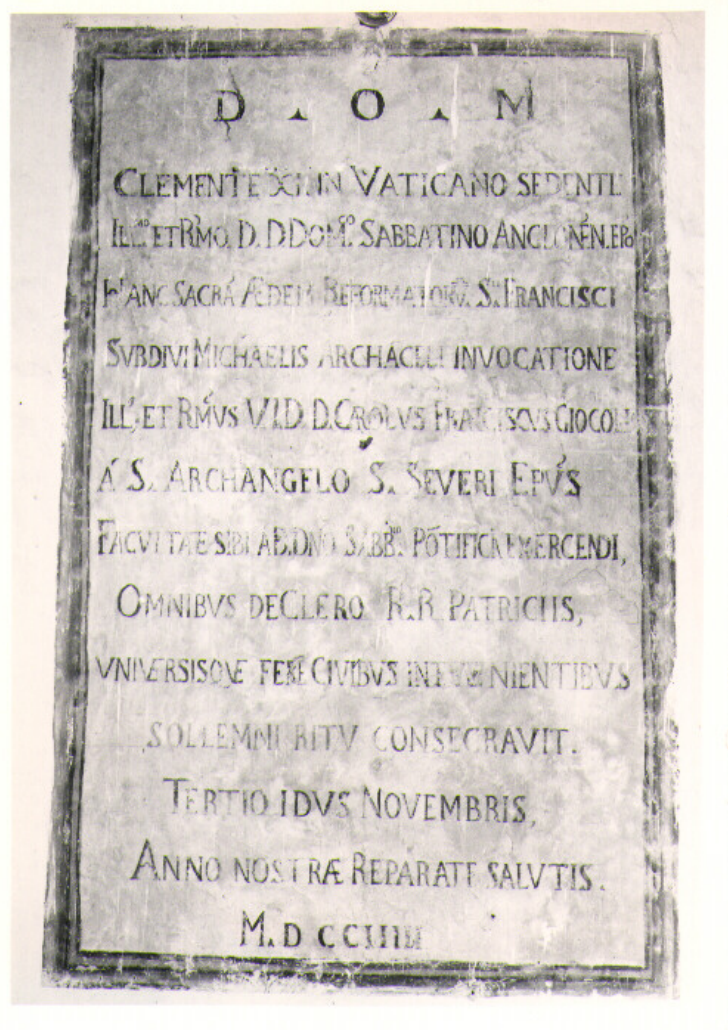 D . O . M
CLEMENTE XI. IN VATICANO SEDENTE
ILL.mo ET RM̃O. D. D DOM.o SABBATINO EPo
HANC SACRÃ ÆDEM REFORMATORŨ. S.ti FRANCISCI
SVB DIVI MICHAELIS ARCHÃCELI INVOCATIONE
ILL.' ET RM̃VS V.I.D D.CAROLVS FRANCISCVS
Á S. ARCHANGELO S. SEVERI EPV̓S
SIBI AB.DNO SABB.no PÕTIFICIA EXERCENDI,
OMNIBVS DE CLERO R.R PATRICIIS,
VNIVERSISQVE FERE CIVIBVS INTERVENIENTIBVS
SOLLEMNI RITV CONSECRAVIT.
TERTIO IDVS NOVEMBRIS,
ANNO NOSTRÆ REPARATE SALVTIS.
M.D CCIIII